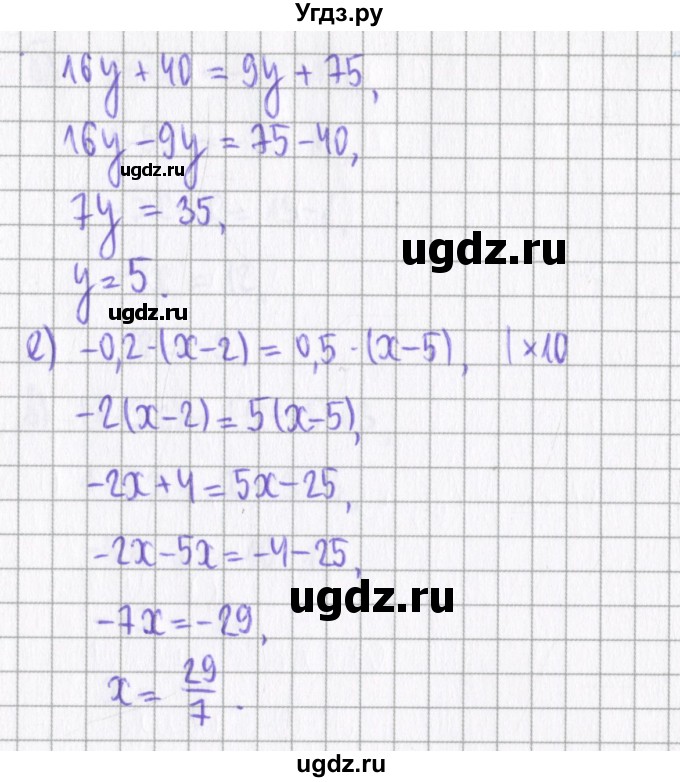 Угдз.ру
16y + 40 = 9y + 75,
16y - 9y = 75 - 40,
ugdz.ru
7y = 35,
ugdz.ru
y = 5.
ugdz.ru
е) -0,2·(x-2) = 0,5·(x-5), | ×10
-2(x-2) = 5(x-5),
-2x + 4 = 5x - 25,
-2x - 5x = -4 - 25,
ugdz.ru
-7x = -29,
x = 29/7.
ugdz.ru